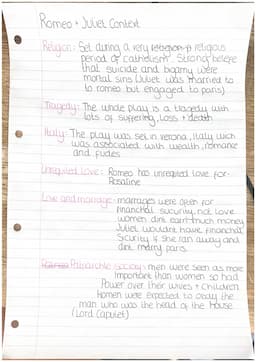 Romeo + Juliet Context
Religion: Set during a very religious religious
period of catholisim. Strong beliefe
that suicide and bigomy were
mortal sins (Juliet was married to
to romeo but engaged to paris)
Tragedy: The whole play is a tragedy with
lots of suffering, loss + death
Italy: The play was set in verona, italy wich
was associated with wealth, romance
and fudes
Unrequited love: Romeo has unrequited love for
Rosaline
Love and marriage: marriages were often for
financhal sucurity not love
women dint earn much money
Juliet wouldnt have financhal
Sicurity if she ran away and
dint marry paris.
Patriarchle society: men were seen as more
important than women so had
Power over their wives + children
Women were expected to obay the
man who was the head of the house
(Lord Capulet)